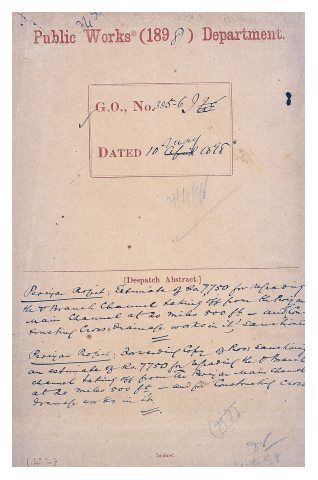 Public Works (1898) Department.
G.O., No. 395-6 I
DATED 10 May 1898
[Despatch Abstract.]
Periyar Project; Estimate of Rs 7750 for
the Branch Channel taking off from the Periyar
Main Channel at 20 miles 500 ft – and
Cross Drainage works in it; Sanctioned
Periyar Project; Forwarding Copy of Procs Sanctioning
an estimate of Rs. 7750 for the Branch
channel taking off from the Periyar Main Channel
at 20 miles 500 ft – and for Constructing Cross
drainage works in it